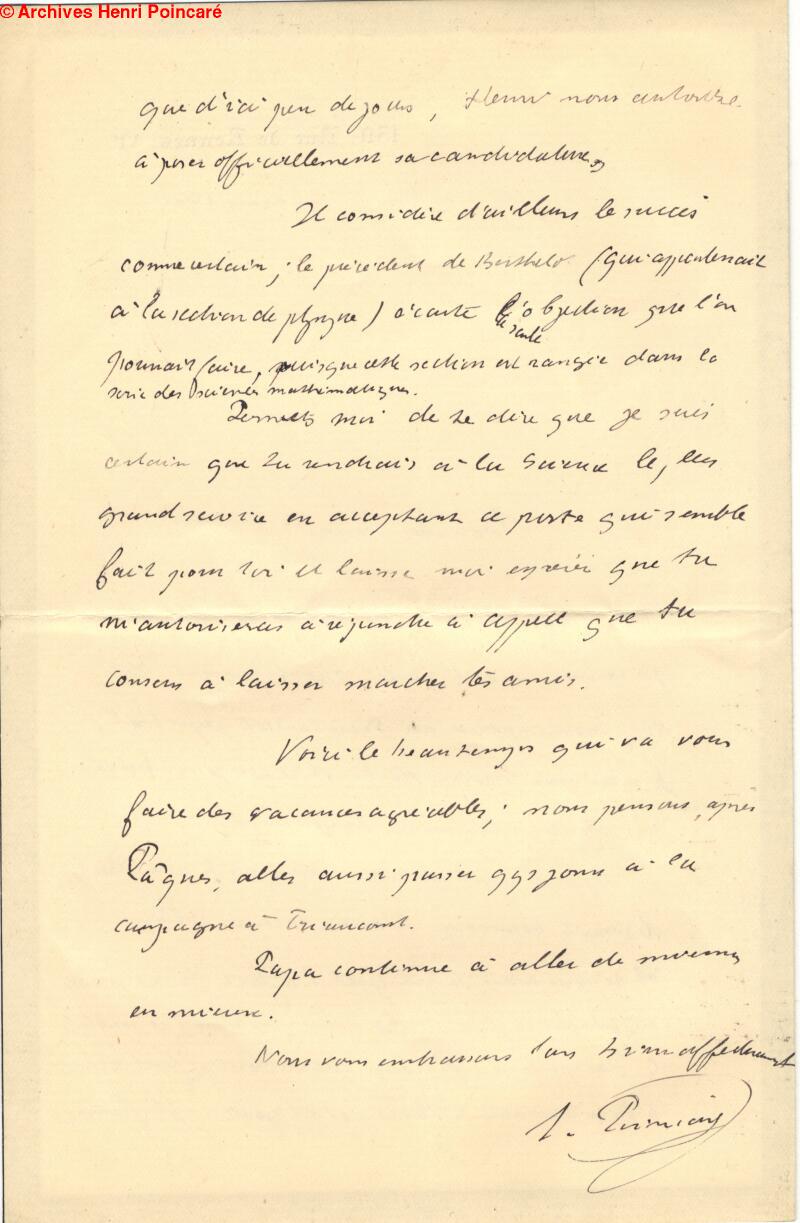 © Archives Henri Poincaré
que d'ici peu de jours, Henri nous autorise
à poser officiellement sa candidature »
Il considère d'ailleurs le succès
comme certain ; le précédent de Berthelot (qui appartenait
à la section de physique) écarte l'objection que l'on
la seule
pourrait faire, puisque cette section est rangée dans la
série des sciences mathématiques.
Permets moi de te dire que je suis
certain que tu rendrais à la Science le plus
grand service en acceptant ce poste qui semble
fait pour toi et laisse moi espérer que tu
m'autoriseras à répondre à Appell que tu
consens à laisser marcher tes amis.
Voici le beau temps qui va vous
faire des vacances agréables ; nous pensons, après
Pâques, aller aussi passer qqs jours à la
campagne à Triaucourt.
Papa continue à aller de mieux
en mieux.
Nous vous embrassons tous bien affectueusement
Poincaré